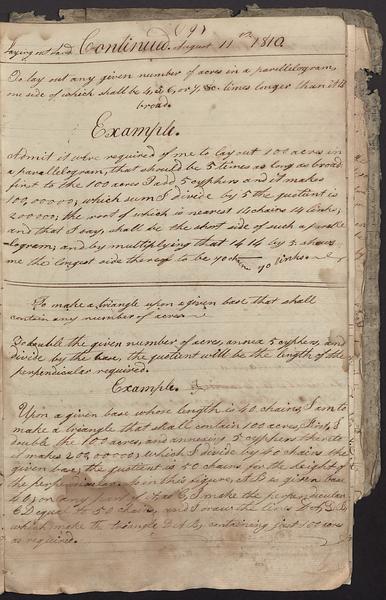 (9)
Laying out Land Continued. August 11th 1810.
To lay out any given number of acres in a parallelogram,
one side of which shall be 4, 5, 6, or 7, &c. times longer than it is
broad.
Example.
Admit it were required of me to lay out 100 acres in
a parallelogram, that should be 5 times as long as broad
first to the 100 acres I add 5 cyphers and it makes
100,00000, which sum I divide by 5 the quotient is
2000000; the root of which is nearest 14 chains 14 links;
and that I say, shall be the short side of such a paralle
=logram, and by multiplying that 14 14 by 5 shows
me the longest side thereof to be 70 chains 70 links.
To make a triangle upon a given base that shall
contain any number of acres
Do double the given number of acres, annex 5 cyphers, and
divide by the base, the quotient will be the length of the
perpendicular required.
Example.
Upon a given base whose length is 40 chains, I am to
make a triangle that shall contain 100 acres, First, I
double the 100 acres, and annexing 5 cyphers thereto
it makes 200,00000, which I divide by 40 chains the
given base, the quotient is 50 chains for the height of
the perpendicular. As in this figure, A B is given base
40; on any part of I make the perpendicular
C D equal to 50 chain, and I draw the lines
which make the triangle containing just 100 acres
as required.